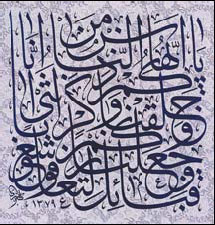 يا أيها الناس إنا خلقناكم من ذكر وأنثى وجعلناكم شعوبا وقبائل لتعارفوا
١٣٧٩